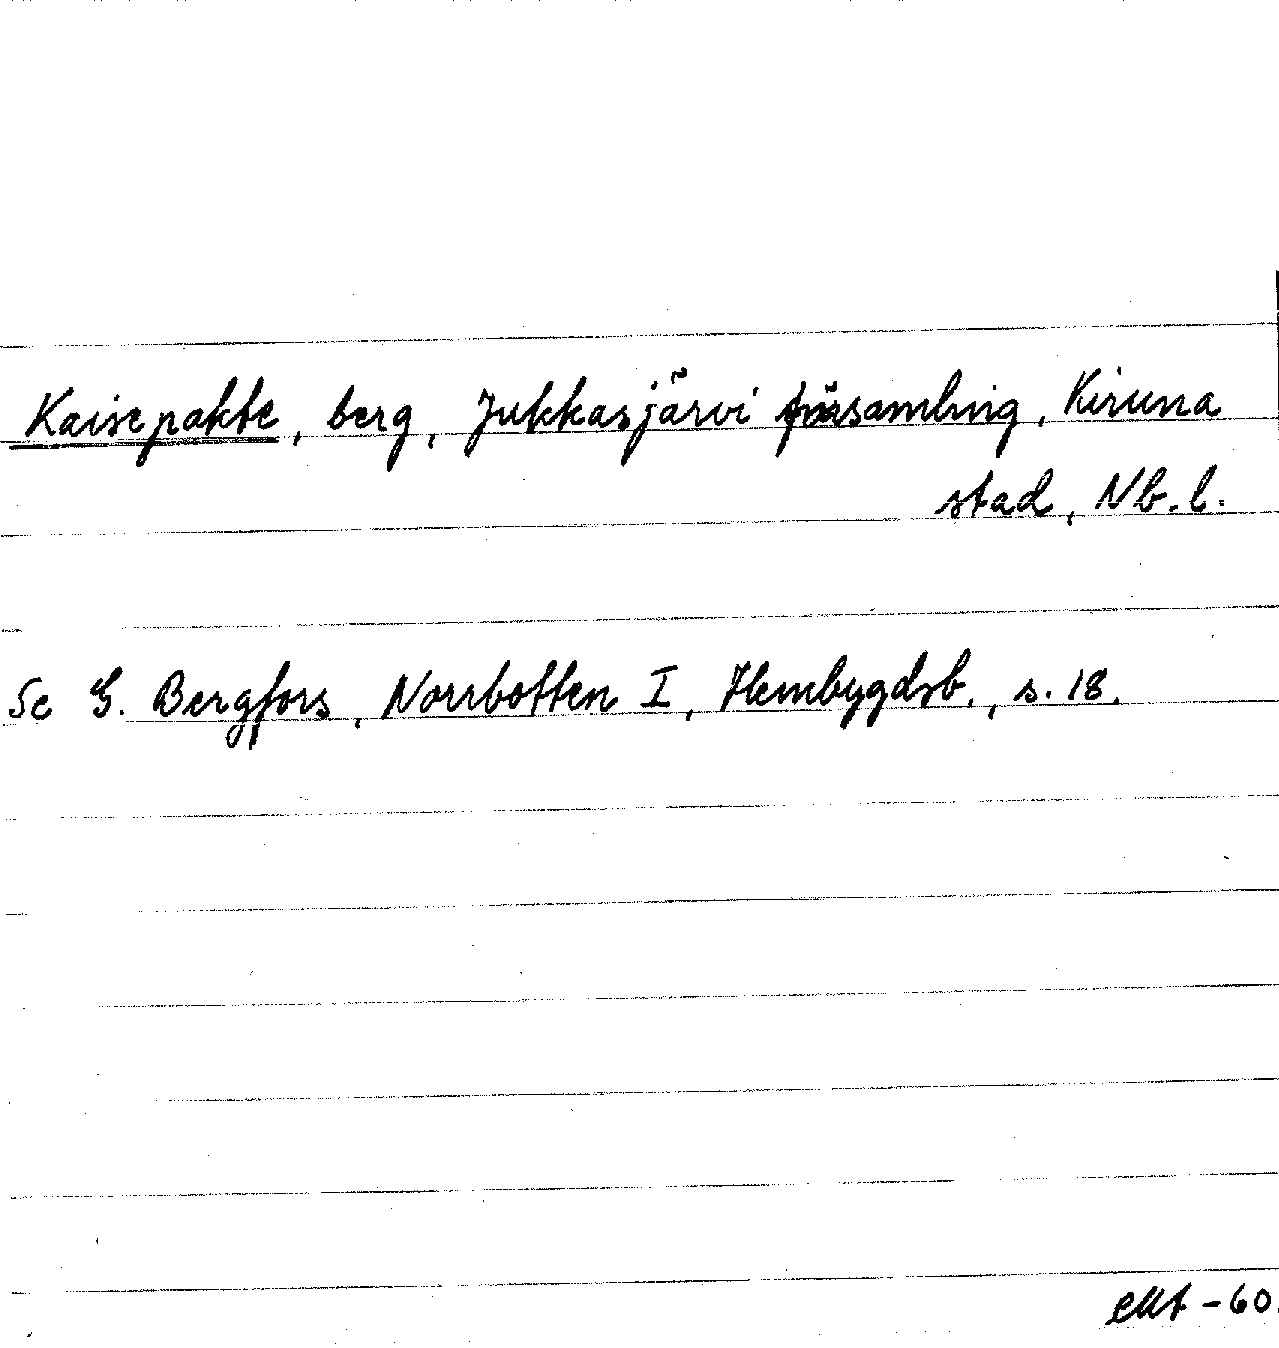 Kaisepakte, berg, Jukkasjärvi församling, Kiruna
stad, Nb. l.
Se G. Bergfors, Norrbotten I, Hembygdsb., s. 18.
-60.